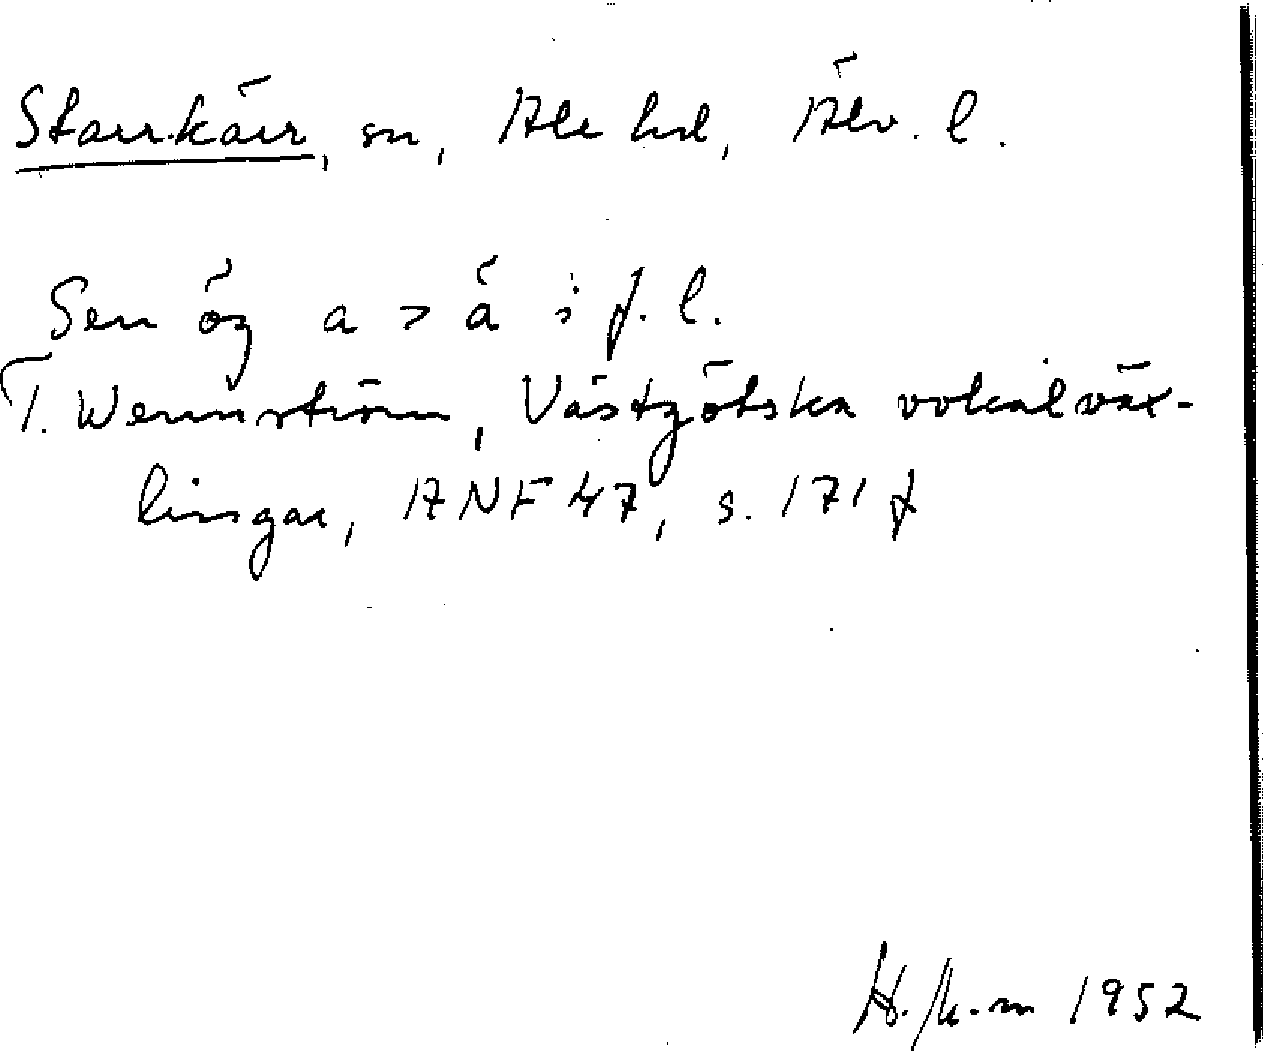 Starrkärr, sn, Ale hd, Älv. l.
Sen ög a > å i f. l.
T. Wennström, Västgötska vokalväx-
lingar, ANF 47, s. 171 f
1952